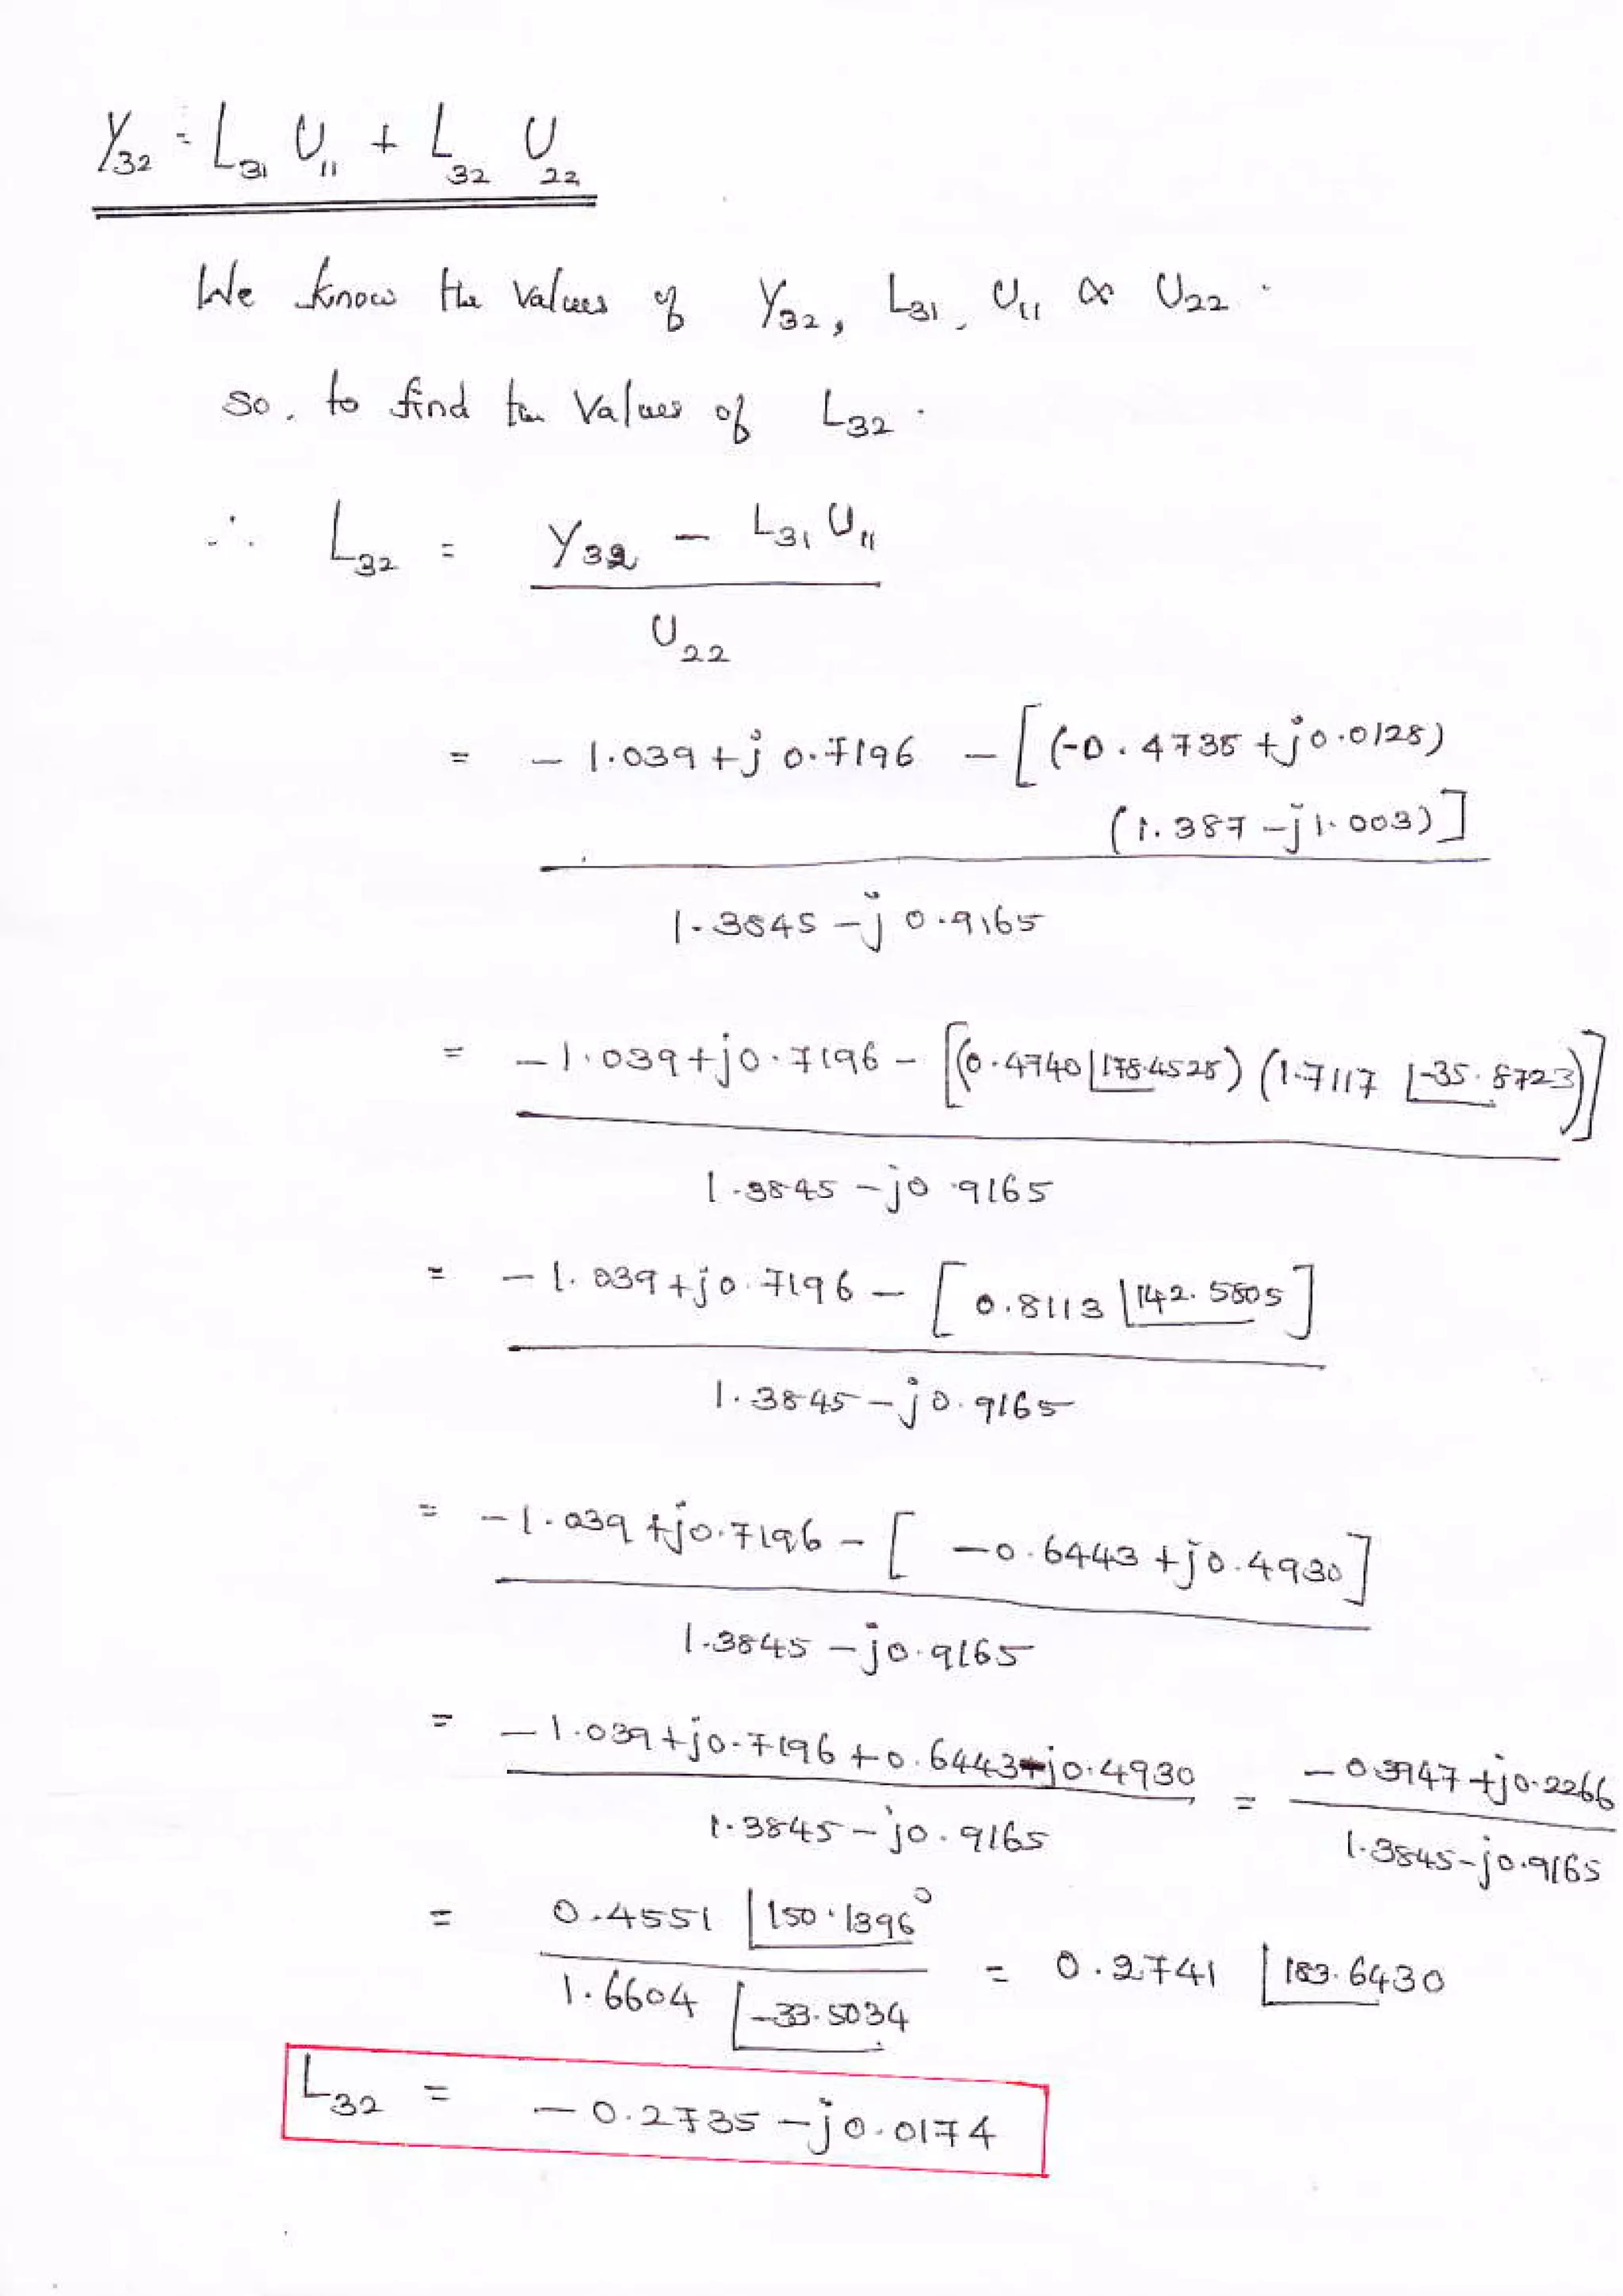 Y32 = L31 U11 + L32 U22
We know the values of Y32, L31, U11 & U22.
So, to find the values of L32.
∴ L32 = Y32 - L31 U11
U22
= -1.039 + j 0.7196 - [(-0.4735 + j0.0128)
(1.387 - j1.003)]
1.3845 - j 0.9165
= -1.039 + j0.7196 - [(0.4740 ∠178.4528) (1.7117 ∠-35.8723)]
1.3845 - j0.9165
= -1.039 + j0.7196 - [0.8113 ∠142.5805]
1.3845 - j0.9165
= -1.039 + j0.7196 - [-0.6443 + j0.4930]
1.3845 - j0.9165
= -1.039 + j0.7196 + 0.6443 - j0.4930 = -0.3947 + j0.2266
1.3845 - j0.9165 1.3845 - j0.9165
= 0.4551 ∠150.1396° = 0.2741 ∠183.6430
1.6604 ∠-33.5034
L32 = -0.2735 - j0.0174